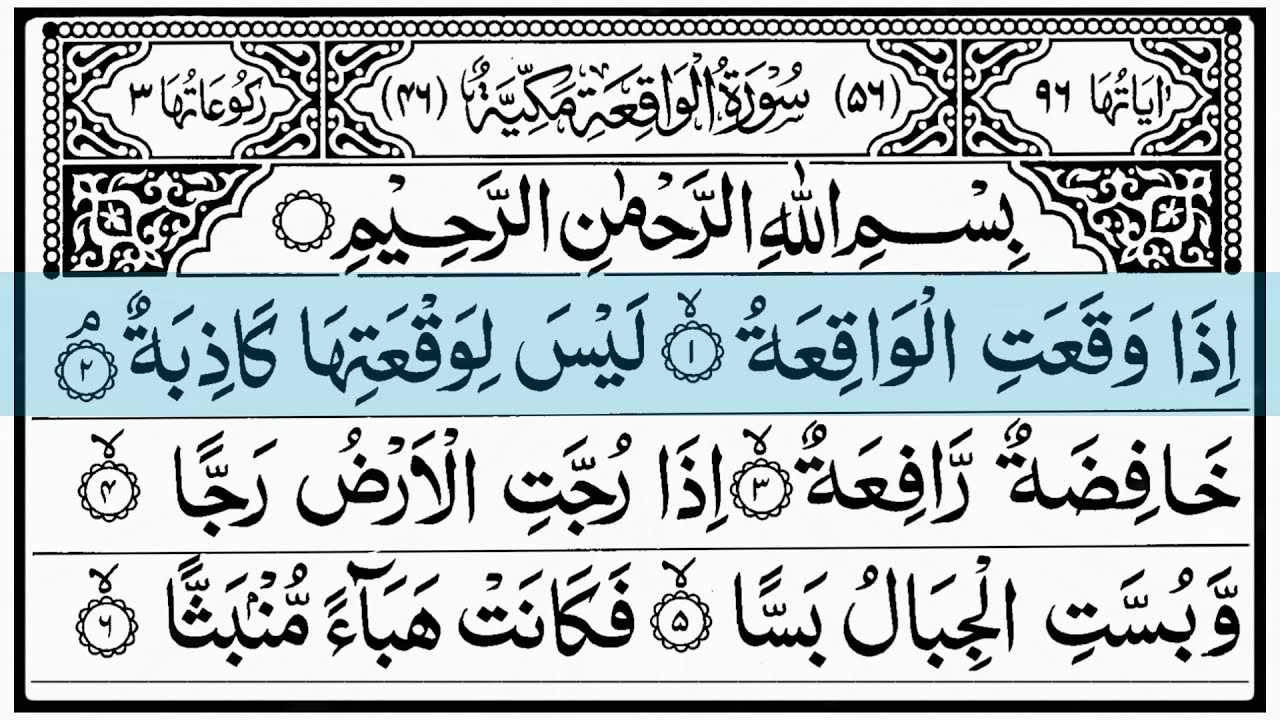 اٰيَاتُهَا ۹۶ (۵۶) سُوْرَةُ الْوَاقِعَةِ مَكِّيَّةٌ (۴۶) رُكُوْعَاتُهَا ۳
بِسْمِ اللهِ الرَّحْمٰنِ الرَّحِيْمِ ○
اِذَا وَقَعَتِ الْوَاقِعَةُ ۙ‏﴿۱﴾ لَيْسَ لِوَقْعَتِهَا كَاذِبَةٌ ۘ‏﴿۲﴾
خَافِضَةٌ رَّافِعَةٌ ۙ‏﴿۳﴾ اِذَا رُجَّتِ الْاَرْضُ رَجًّا ۙ‏﴿۴﴾
وَّبُسَّتِ الْجِبَالُ بَسًّا ۙ‏﴿۵﴾ فَكَانَتْ هَبَآءً مُّنْۢبَثًّا ۙ‏﴿۶﴾